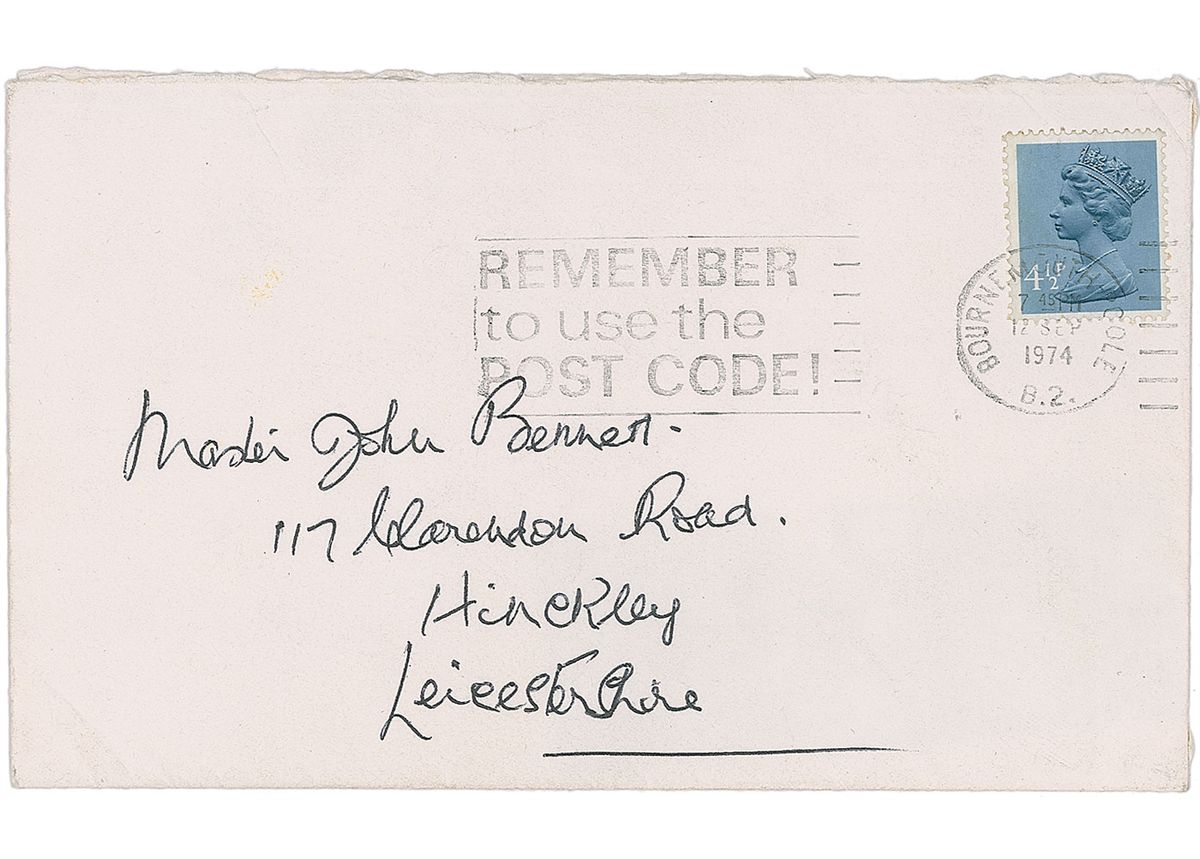 REMEMBER
to use the
POST CODE!
4½P
BOURNEMOUTH POOLE
7 45 PM
12 SEP
1974
B.2.
Master John Bennett.
117 Clarendon Road.
Hinckley
Leicestershire